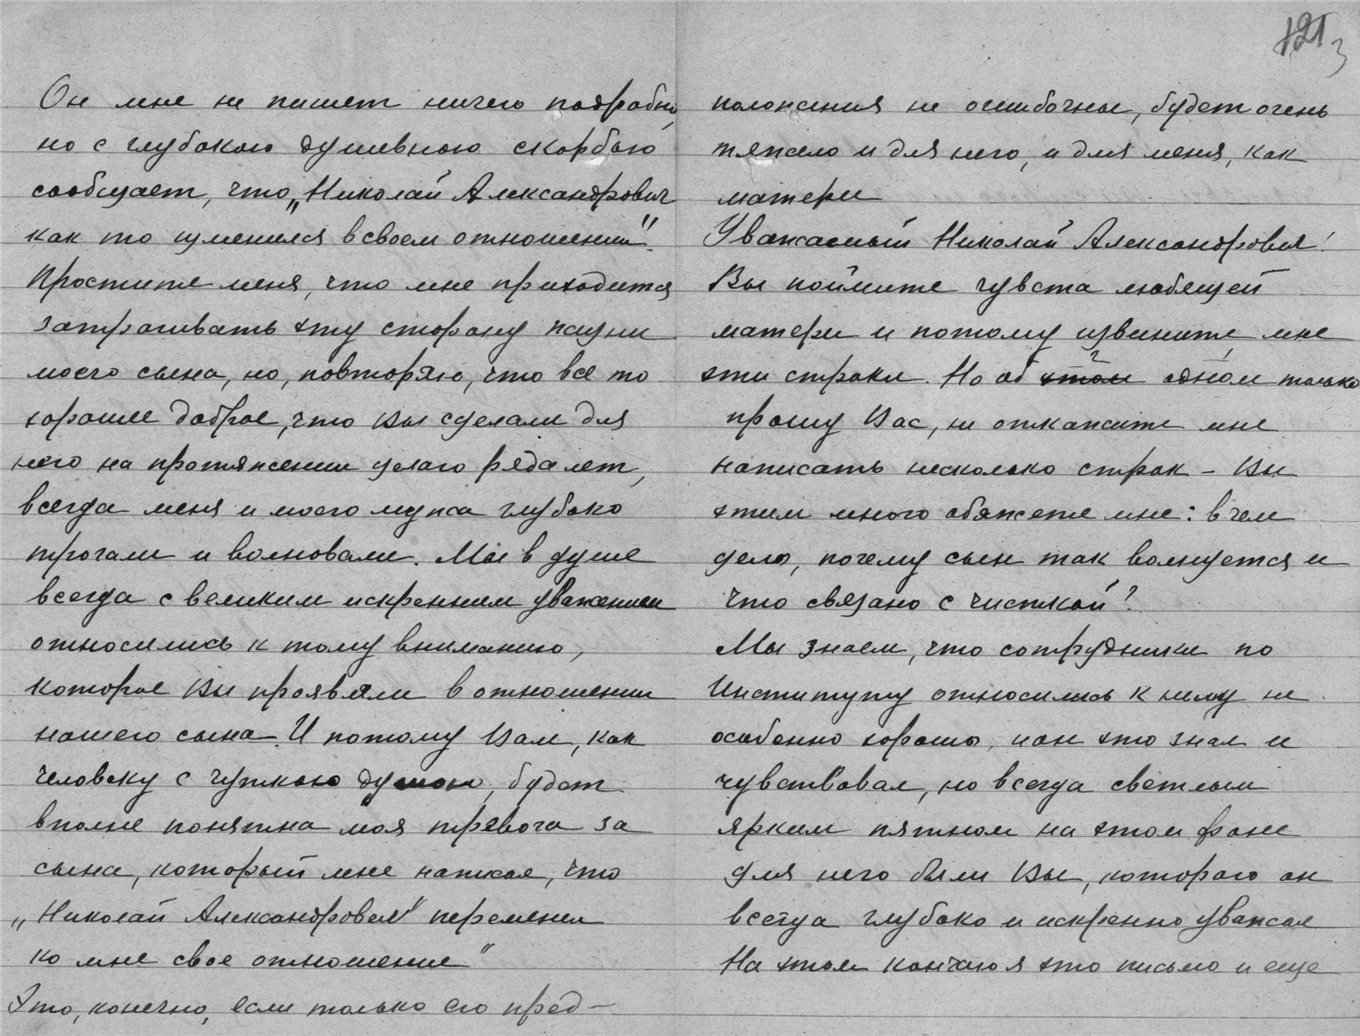 Он мне не пишет ничего подробно,
но с глубокою душевною скорбью
сообщает, что „Николай Александрович
как то изменился в своем отношении".
Простите меня, что мне приходится
затрагивать эту сторону жизни
моего сына, но, повторяю, что все то
хорошее доброе, что Вы сделали для
него на протяжении целого ряда лет,
всегда меня и моего мужа глубоко
трогали и волновали. Мы в душе
всегда с великим искренним уважением
относились к тому вниманию,
которое Вы проявляли в отношении
нашего сына. И потому Вам, как
человеку с чуткою душою, будет
вполне понятна моя тревога за
сына, который мне написал, что
„Николай Александрович" переменил
ко мне свое отношение"
Это, конечно, если только его пред-
121
3
положения не ошибочны, будет очень
тяжело и для него, и для меня, как
матери
Уважаемый Николай Александрович!
Вы поймите чувста любящей
матери и потому извините мне
эти строки. Но об этом одном только
прошу Вас, не откажите мне
написать несколько строк – Вы
этим много обяжете мне: в чем
дело, почему сын так волнуется и
что связано с чисткой?
Мы знаем, что сотрудники по
Институту относились к нему не
особенно хорошо, и он это знал и
чувствовал, но всегда светлым
ярким пятном на этом фоне
для него были Вы, которого он
всегда глубоко и искренно уважал
На этом кончаю я это письмо и еще